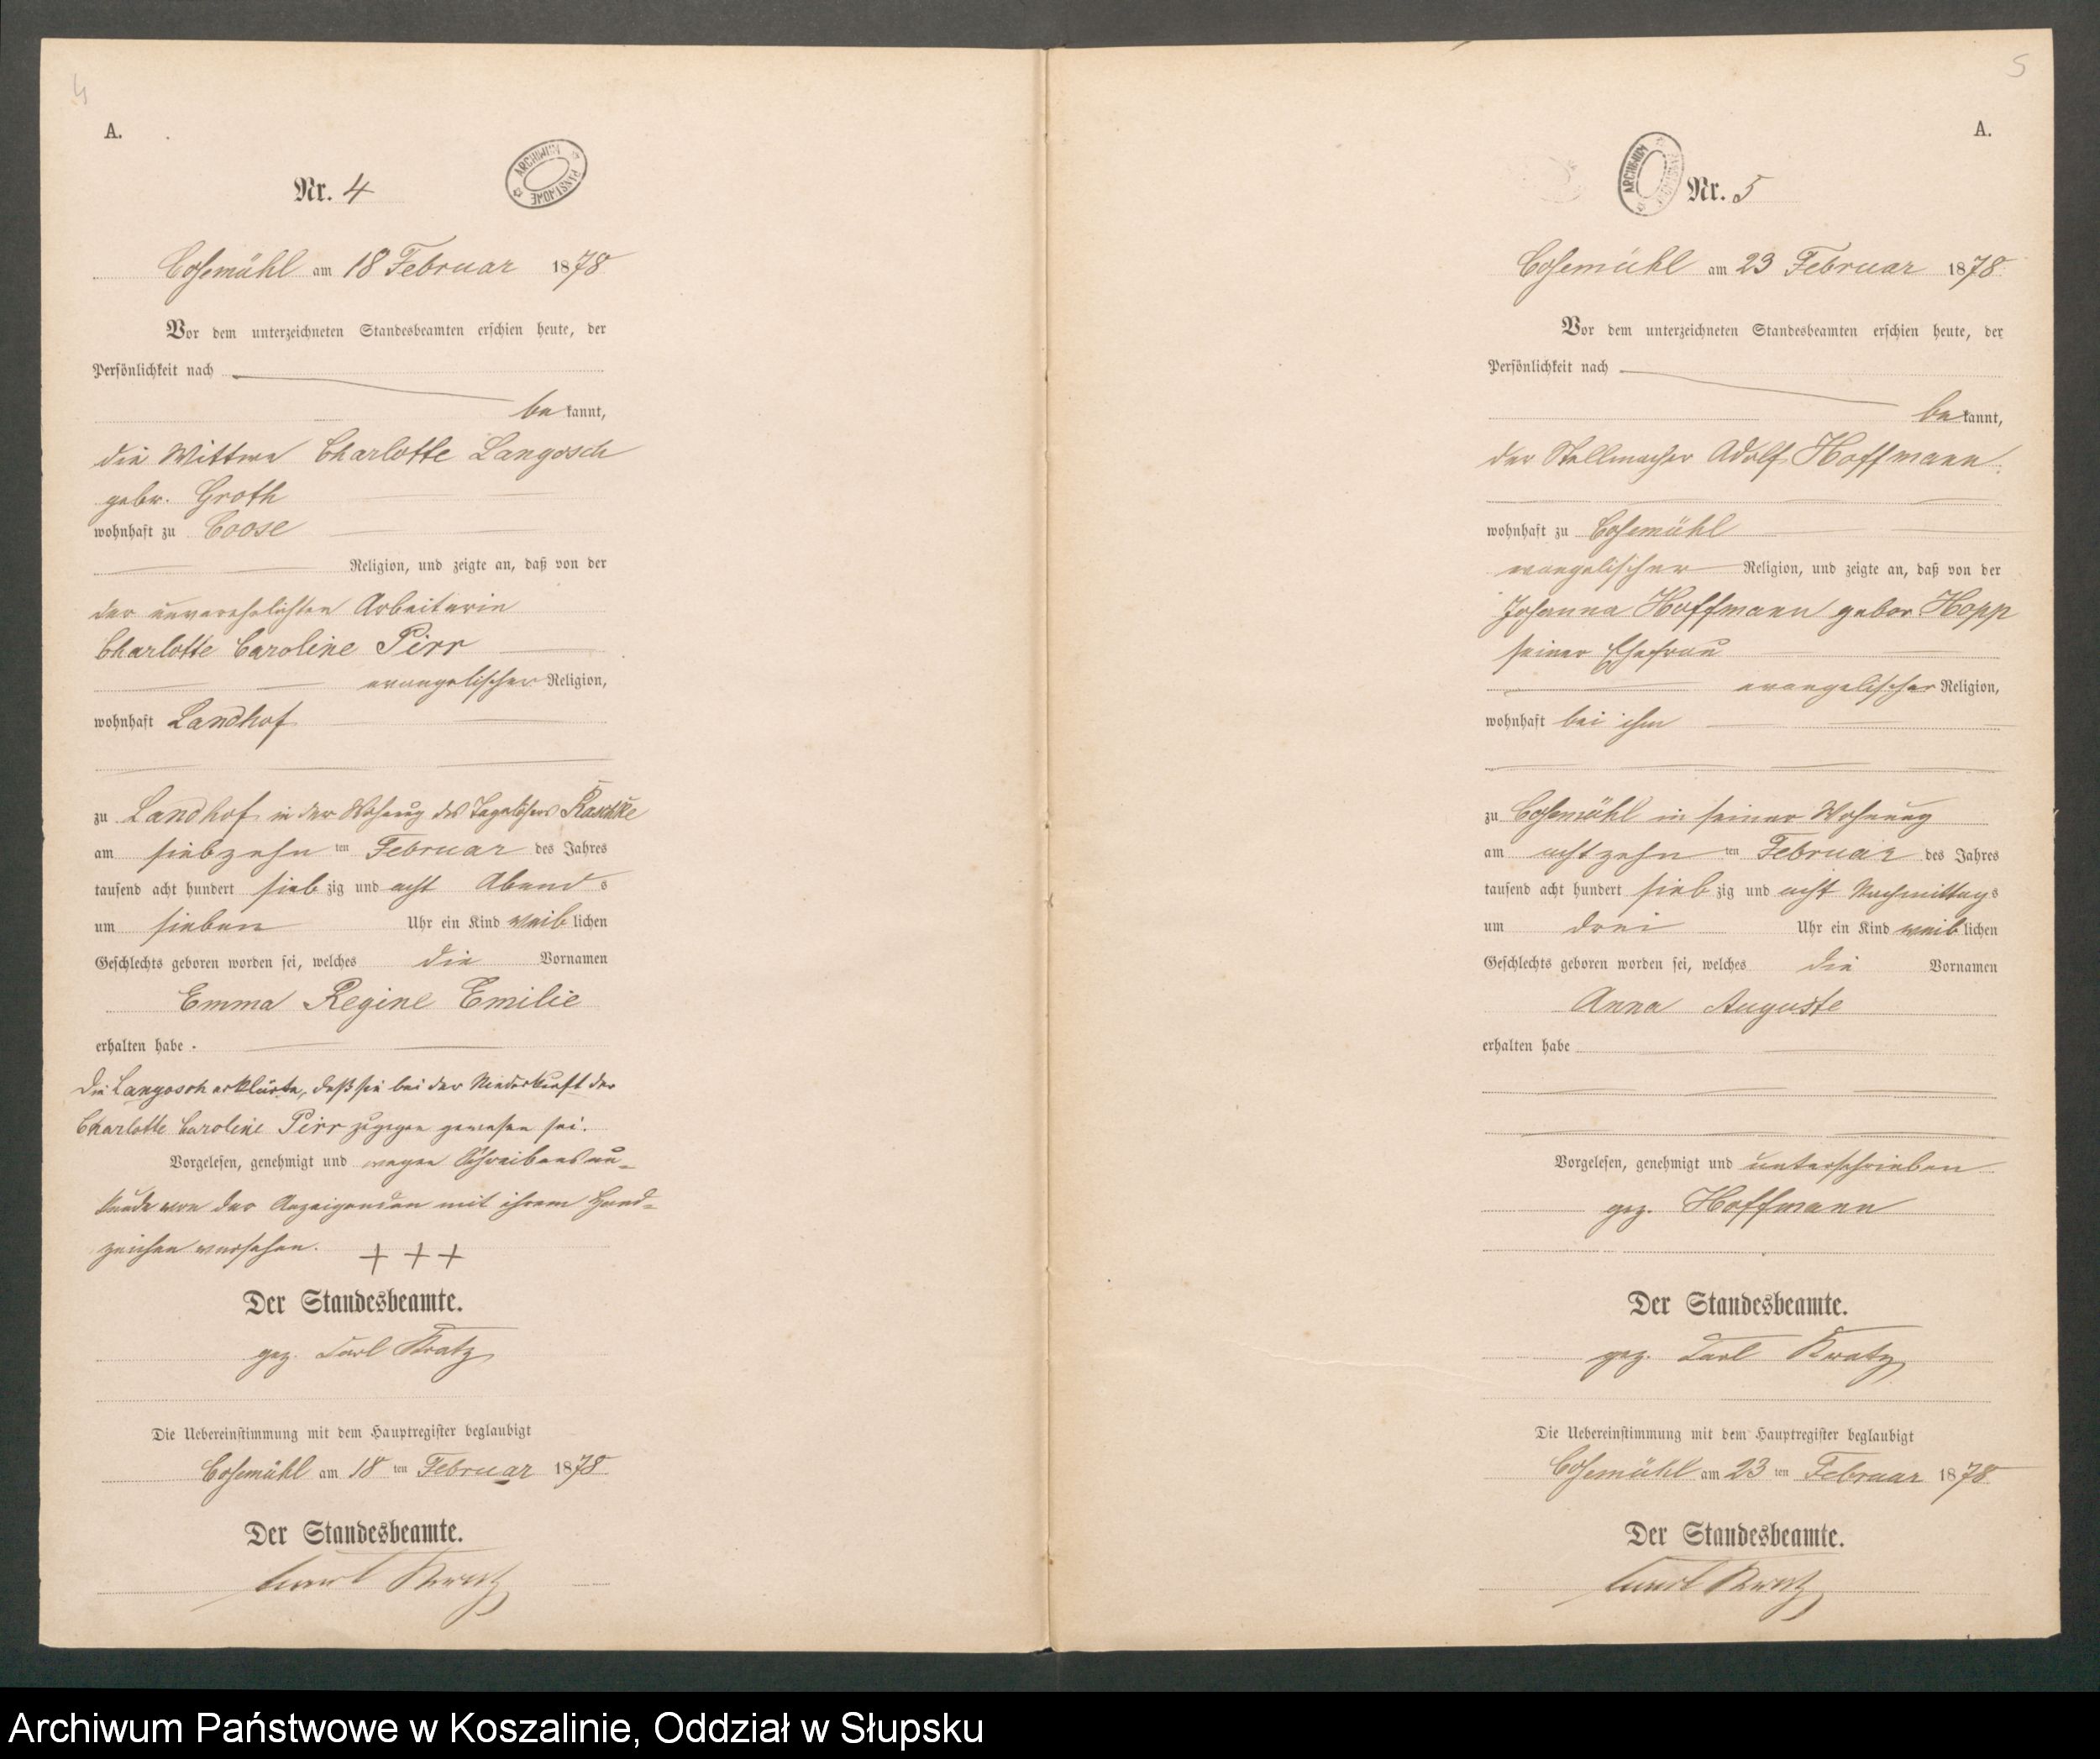 4
A.
ARCHIWUM PAŃSTWOWE
Nr. 4
Cosemühl am 18 Februar 1878
Vor dem unterzeichneten Standesbeamten erschien heute, der
Persönlichkeit nach
be kannt,
die Wittwe Charlotte Langosch
gebr. Groth
wohnhaft zu Coose
Religion, und zeigte an, daß von der
der unverehelichten Arbeiterin
Charlotte Caroline Pirr
evangelischer Religion,
wohnhaft Landhof
zu Landhof in der Wohnung des Tagelöhners Raschke
am siebzehn ten Februar des Jahres
tausend acht hundert sieb zig und acht Abend s
um sieben Uhr ein Kind weib lichen
Geschlechts geboren worden sei, welches die Vornamen
Emma Regine Emilie
erhalten habe.
Die Langosch erklärte, daß sie bei der Niederkunft der
Charlotte Caroline Pirr zugegen gewesen sei.
Vorgelesen, genehmigt und wegen Schreibensun-
kunde von der Anzeigenden mit ihrem Hand-
zeichen versehen. + + +
Der Standesbeamte.
gez. Carl Kratz
Die Uebereinstimmung mit dem Hauptregister beglaubigt
Cosemühl am 18 ten Februar 1878
Der Standesbeamte.
Carl Kratz
5
A.
ARCHIWUM
Nr. 5
Cosemühl am 23 Februar 1878
Vor dem unterzeichneten Standesbeamten erschien heute, der
Persönlichkeit nach
be kannt,
der Stellmacher Adolf Hoffmann
wohnhaft zu Cosemühl
evangelischer Religion, und zeigte an, daß von der
Johanna Hoffmann gebor Hopp
seiner Ehefrau
evangelischer Religion,
wohnhaft bei ihm
zu Cosemühl in seiner Wohnung
am achtzehn ten Februar des Jahres
tausend acht hundert sieb zig und acht Nachmittag s
um drei Uhr ein Kind weib lichen
Geschlechts geboren worden sei, welches die Vornamen
Anna Auguste
erhalten habe
Vorgelesen, genehmigt und unterschrieben
gez. Hoffmann
Der Standesbeamte.
gez. Carl Kratz
Die Uebereinstimmung mit dem Hauptregister beglaubigt
Cosemühl am 23 ten Februar 1878
Der Standesbeamte.
Carl Kratz
Archiwum Państwowe w Koszalinie, Oddział w Słupsku